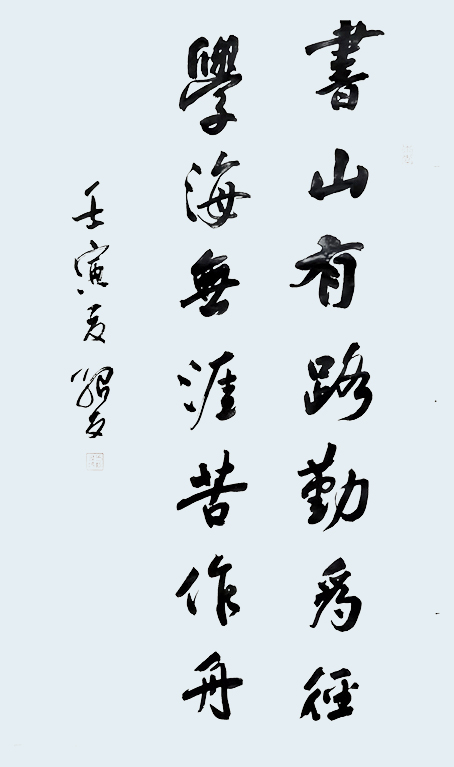 書山有路勤為徑
學海無涯苦作舟
壬寅夏